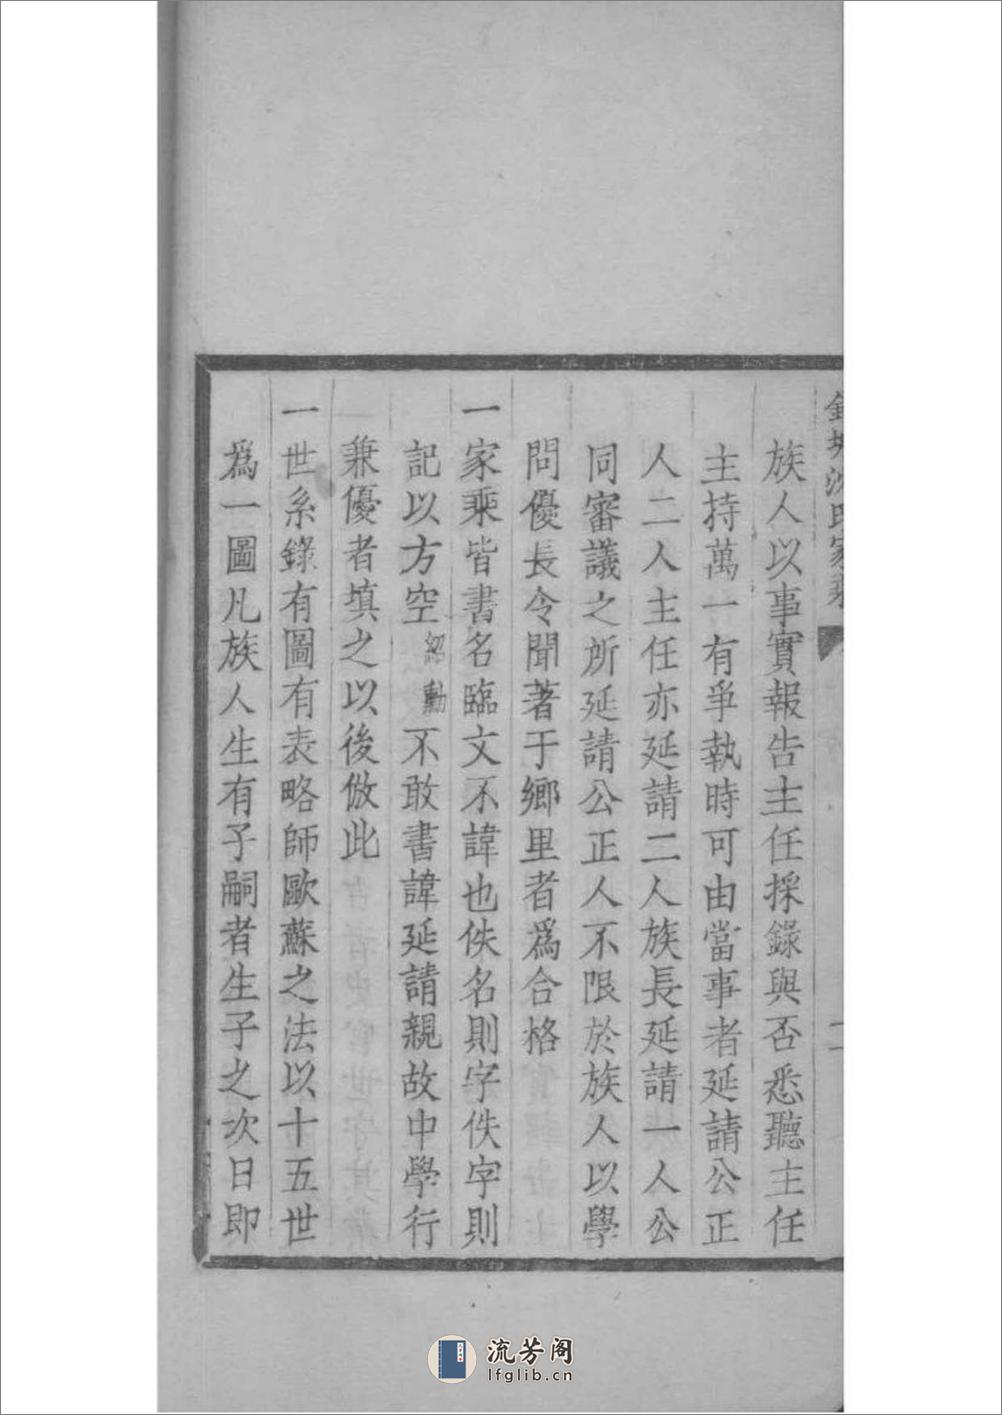 族人以事實報告主任採錄與否悉聽主任
主持萬一有爭執時可由當事者延請公正
人二人主任亦延請二人族長延請一人公
同審議之所延請公正人不限於族人以學
問優長令聞著于鄉里者爲合格
一家乘皆書名臨文不諱也佚名則字佚字則
記以方空紹勳不敢書諱延請親故中學行
兼優者填之以後倣此
一世系錄有圖有表略師歐蘇之法以十五世
爲一圖凡族人生有子嗣者生子之次日即
流芳阁
lfglib.cn